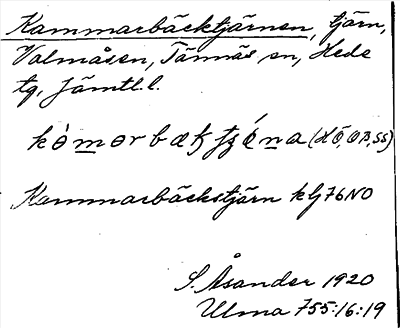 Kammarbäcktjärnen, tjärn,
Valmåsen, Tännäs sn, Hede
tg, Jämtl. l.
Kammarbäckstjärn klj 76 NO
S. Åsander 1920
Ulma 755:16:19